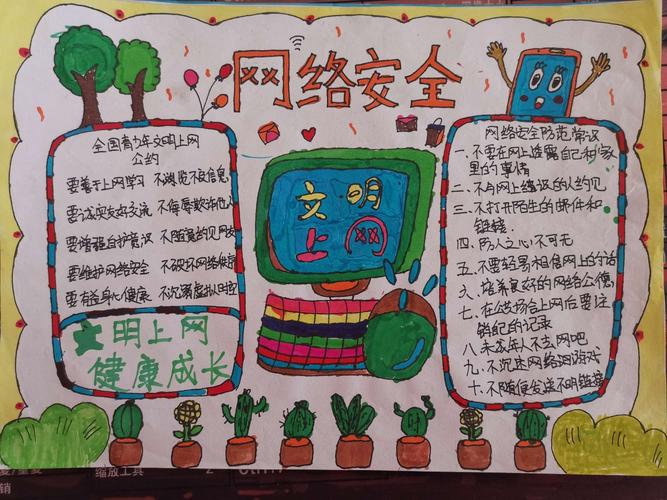 网络安全
全国青少年文明上网
公约
要善于上网学习 不浏览不良信息
要诚实友好交流 不侮辱欺诈他人
要增强自护意识 不随意约见网友
要维护网络安全 不破坏网络秩序
要有益身心健康 不沉溺虚拟时空
文明上网
健康成长
文明
上网
网络安全防范常识
一、不要在网上透露自己和家
里的事情
二、不与网上结识的人约见
三、不打开陌生的邮件和
链接.
四、防人之心不可无
五、不要轻易相信网上的
六、培养良好的网络公德
七、在公共场合上网后要注
销的记录
八、未成年人不支网吧
九、不沉迷网络游戏
十、不随便发送不明链接
缩放工具
2
Ctrl+
销